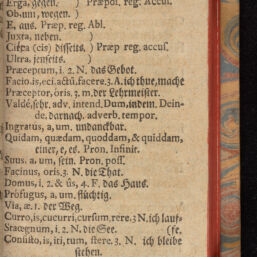 Erga, gegen. ) Præpos. reg. Accus.
Ob, um, wegen. )
E, aus. Præp. reg. Abl.
Juxta, neben. )
Citra (cis) disseits, ) Præp reg, accus.
Ultra. jenseits. )
Præceptum, i. 2. N. das Gebot.
Facio.is, eci. actũ. facere. 3. A. ich thue, mache
Præceptor, oris, 3. m. der Lehrmeister.
Valdè, sehr. adv. intend. Dum, indem. Dein-
de. darnach. adverb. tempor.
Ingratus, a, um. undanckbar.
Quidam, quædam, quoddam, & quiddam,
einer, e, es. Pron. Infinit.
Suus. a. um, sein. Pron. poss.
Facinus, oris. 3. N. die That.
Domus, i. 2. & ûs, 4. F. das Haus.
Profugus, a, um. flüchtig.
Via, æ. 1. der Weg.
Curro, is, cucurri, cursum, rere. 3 N. ich lauf-
Stagnum, i. 2. N. die See. (fe.
Consisto, is, iti, tum, stere. 3. N. ich bleibe
stehen.